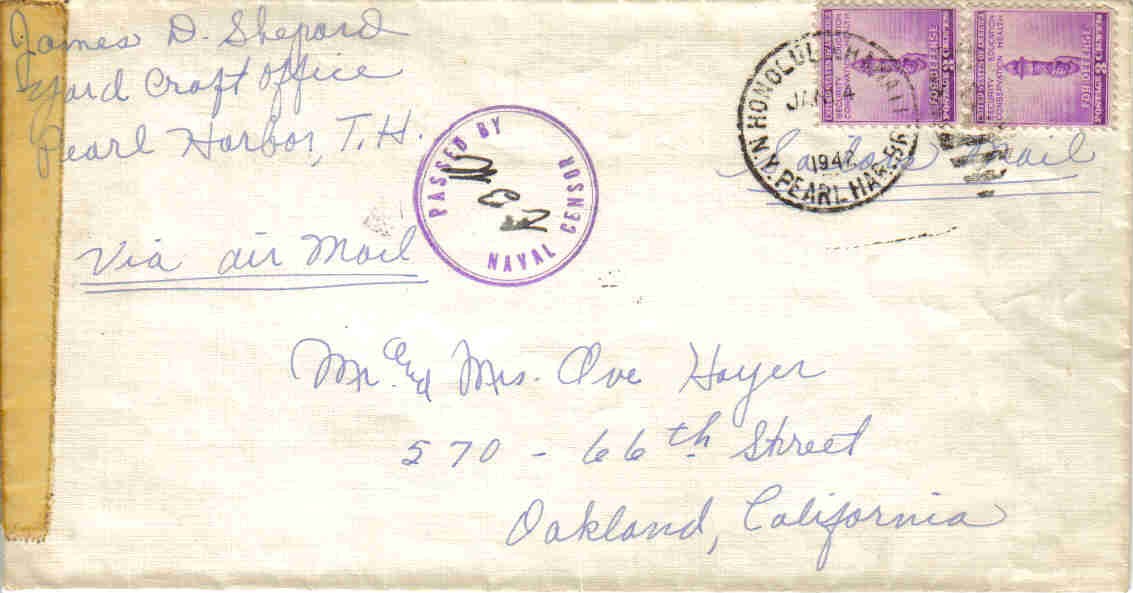 James D. Shepard
Yard Craft Office
Pearl Harbor, T.H.
Via air Mail
PASSED BY
NAVAL CENSOR
HONOLULU HAWAII
JAN 4
1942
N.Y. PEARL HAR. BR.
UNITED STATES OF AMERICA
SECURITY EDUCATION
CONSERVATION HEALTH
FOR DEFENSE
POSTAGE 3 CENTS
UNITED STATES OF AMERICA
SECURITY EDUCATION
CONSERVATION HEALTH
FOR DEFENSE
POSTAGE 3 CENTS
Mail
Mr. and Mrs. Ove Hoyer
570 - 66th Street
Oakland, California